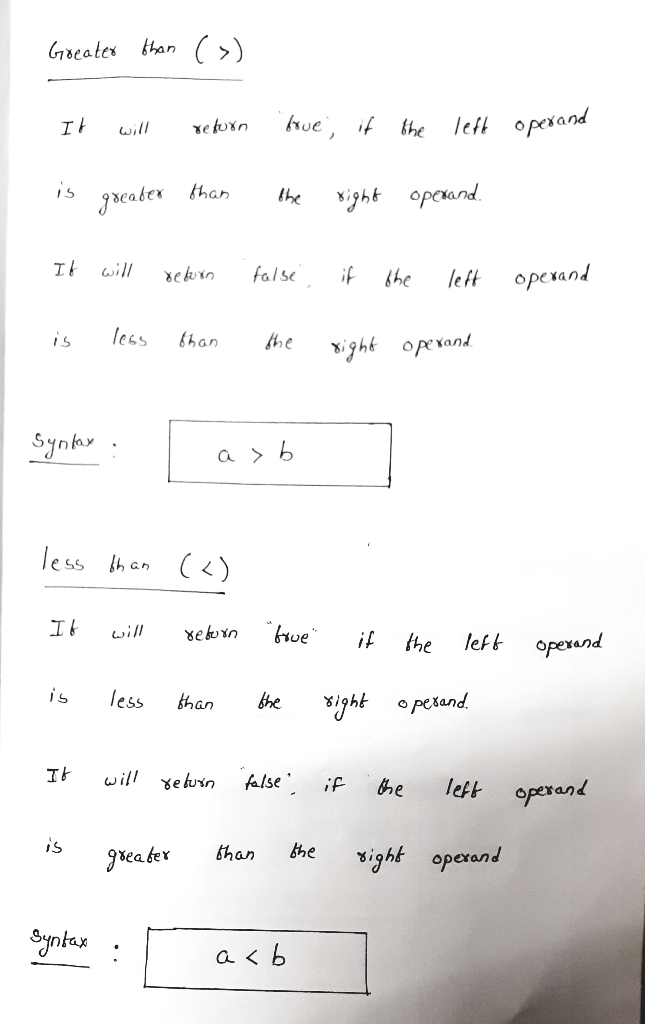 Greater than (>)
It will return 'true', if the left operand
is greater than the right operand.
It will return 'false', if the left operand
is less than the right operand.
Syntax : a > b
less than (<)
It will return "true" if the left operand
is less than the right operand.
It will return 'false', if the left operand
is greater than the right operand
Syntax : a < b